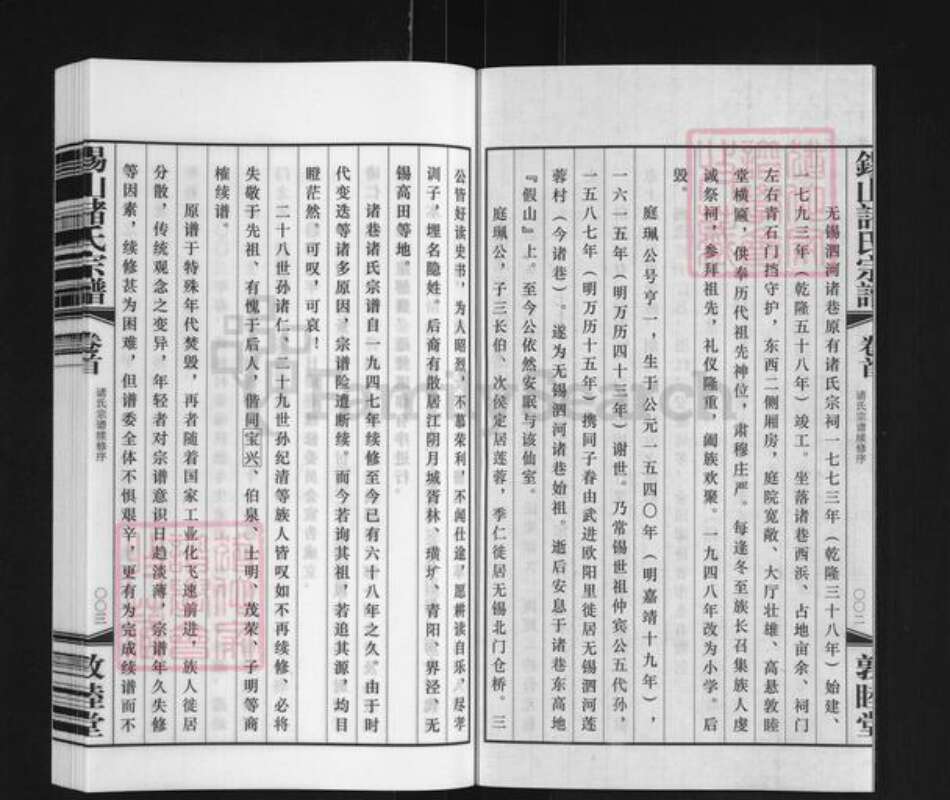 锡山诸氏宗谱 卷首 诸氏宗谱续修序 〇〇二 敦睦堂
无锡泗河诸巷原有诸氏宗祠一七七三年（乾隆三十八年）始建、
一七九三年（乾隆五十八年）竣工。坐落诸巷西浜、占地亩余、祠门
左右青石门挡守护，东西二侧厢房，庭院宽敞、大厅壮雄、高悬敦睦
堂横匾，供奉历代祖先神位，肃穆庄严。每逢冬至族长召集族人虔
诚祭祠，参拜祖先，礼仪隆重，阖族欢聚。一九四八年改为小学。后
毁。
庭珮公号亨一，生于公元一五四〇年（明嘉靖十九年），
一六一五年（明万历四十三年）谢世。乃常锡世祖仲宾公五代孙，
一五八七年（明万历十五年）携同子春由武进欧阳里徙居无锡泗河莲
蓉村（今诸巷）。遂为无锡泗河诸巷始祖。逝后安息于诸巷东高地
『假山』上。至今公依然安眠与该仙室。
庭珮公，子三长伯、次侯定居莲蓉，季仁徙居无锡北门仓桥。三
公皆好读史书，为人昭烈，不慕荣利，不闻仕途，愿耕读自乐，尽孝
训子，埋名隐姓。后裔有散居江阴月城胥林、璜圹、青阳、界泾、无
锡高田等地。
诸巷诸氏宗谱自一九四七年续修至今已有六十八年之久。由于时
代变迭等诸多原因，宗谱险遭断续，而今若询其祖，若追其源，均目
瞪茫然，可叹，可哀！
二十八世孙诸仁、二十九世孙纪清等族人皆叹如不再续修、必将
失敬于先祖、有愧于后人，偕同宝兴、伯泉、士明、茂荣、子明等商
榷续谱。
原谱于特殊年代焚毁，再者随着国家工业化飞速前进，族人徙居
分散，传统观念之变异，年轻者对宗谱意识日趋淡薄，宗谱年久失修
等因素，续修甚为困难，但谱委全体不惧艰辛，更有为完成续谱而不
锡山诸氏宗谱 卷首 诸氏宗谱续修序 〇〇三 敦睦堂
FamilySearch